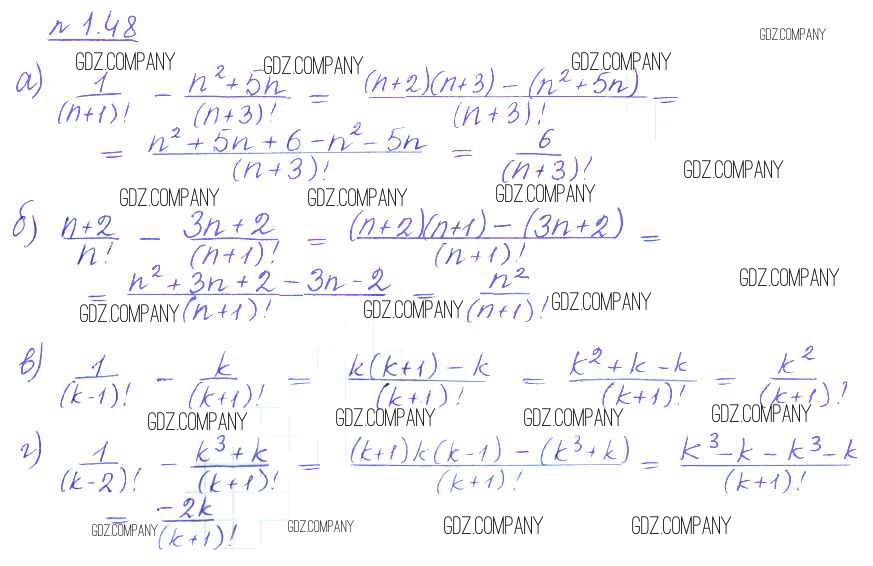 n 1.48
GDZ.COMPANY
GDZ.COMPANY GDZ.COMPANY GDZ.COMPANY
а) 1/(n+1)! - (n²+5n)/(n+3)! = ((n+2)(n+3) - (n²+5n))/(n+3)! =
= (n²+5n+6-n²-5n)/(n+3)! = 6/(n+3)!
GDZ.COMPANY
GDZ.COMPANY GDZ.COMPANY GDZ.COMPANY
б) (n+2)/n! - (3n+2)/(n+1)! = ((n+2)(n+1) - (3n+2))/(n+1)! =
GDZ.COMPANY
= (n²+3n+2-3n-2)/(n+1)! = n²/(n+1)!
GDZ.COMPANY GDZ.COMPANY GDZ.COMPANY
в) 1/(k-1)! - k/(k+1)! = (k(k+1) - k)/(k+1)! = (k²+k-k)/(k+1)! = k²/(k+1)!
GDZ.COMPANY GDZ.COMPANY GDZ.COMPANY GDZ.COMPANY
г) 1/(k-2)! - (k³+k)/(k+1)! = ((k+1)k(k-1) - (k³+k))/(k+1)! = (k³-k-k³-k)/(k+1)!
= -2k/(k+1)!
GDZ.COMPANY GDZ.COMPANY GDZ.COMPANY GDZ.COMPANY